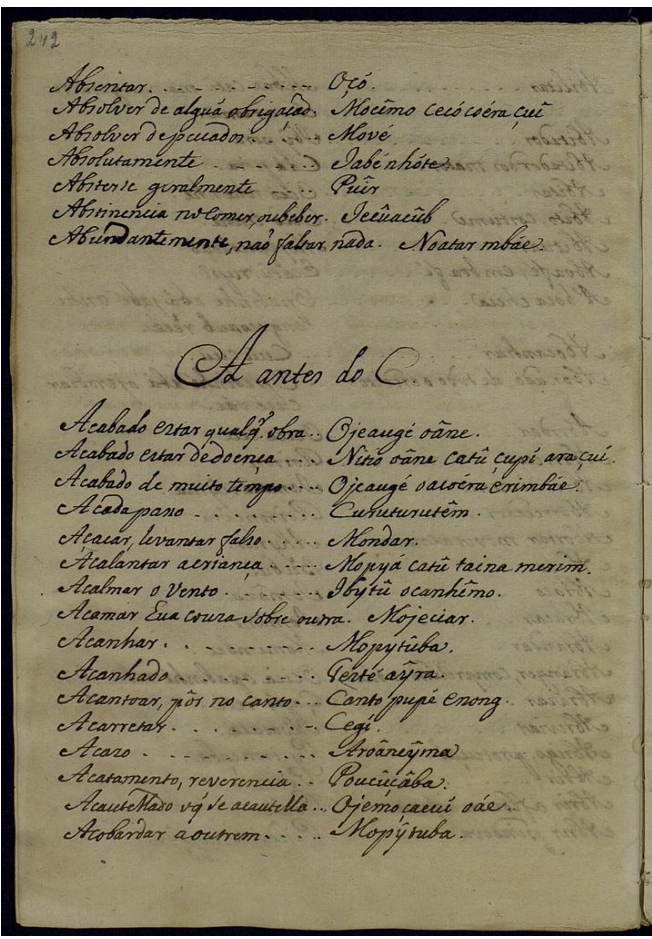 242
Absentar. . . . . . . . . Oçó.
Absolver de alguã obrigaçaõ. Mocîmo cecó coéra çuî
Absolver de pecados . . . Mové
Absolutamente . . . . . Iabénhóte.
Absterse geralmente . . . Puîr
Abstinencia no comer, ou beber. Iecûacûb
Abundantemente, naõ faltar nada. Noatar mbáe.
A antes do C.
Acabado estar qualqr. obra . . Ojeaugé oâne.
Acabado estar de doença . . . . Nitio oâne catû çupí ara çuí.
Acabado de muito tempo . . . Ojeaugé oacoéra erimbáe.
A cada passo . . . . . . . Curuturutêm.
Açacar, levantar falso . . . . Mondar.
Acalantar a criança . . . . . Mopyá catû taina merim.
Acalmar o vento . . . . . . Ibytû ocanhêmo.
Acamar huã couza sobre outra. Mojeciar.
Acanhar . . . . . . . . Mopytûba.
Acanhado . . . . . . . Teité aŷra.
Acantoar, pôr no canto . . Canto pupé enong.
Acarretar . . . . . . . . Cegî.
Acazo . . . . . . . . . Aroâneŷma
Acatamento, reverencia . . Poucûçâba.
Acautellado o q̃ se acautella . . Ojemoçacuí oáe.
Acobardar a outrem . . . . . Mopŷtuba.